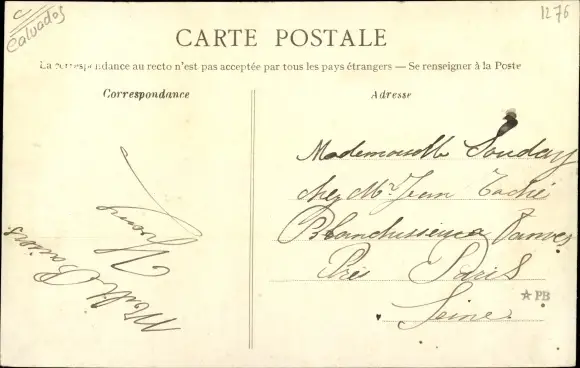 Calvados
1276
CARTE POSTALE
La correspondance au recto n'est pas acceptée par tous les pays étrangers — Se renseigner à la Poste
Correspondance
Adresse
Mille Baisers
Mademoiselle Souday
chez Mr Jean Taché
Blanchisseur a Vanves
Près Paris
Seine
★ PB